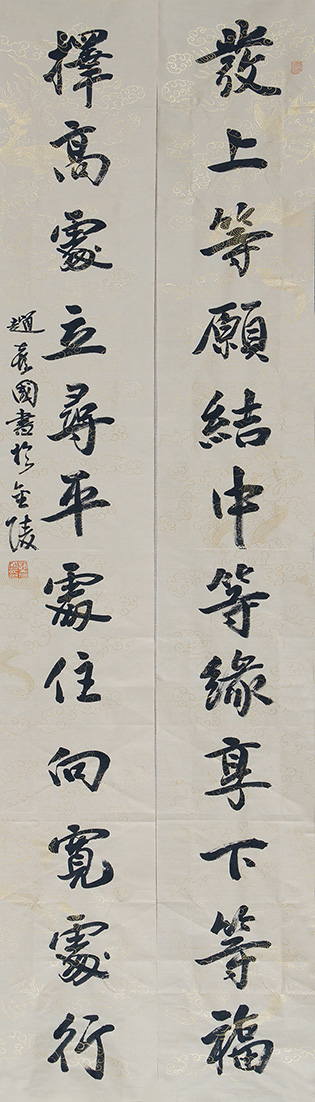 發上等願結中等緣享下等福
擇高處立尋平處住向寬處行
趙喜國書於金陵